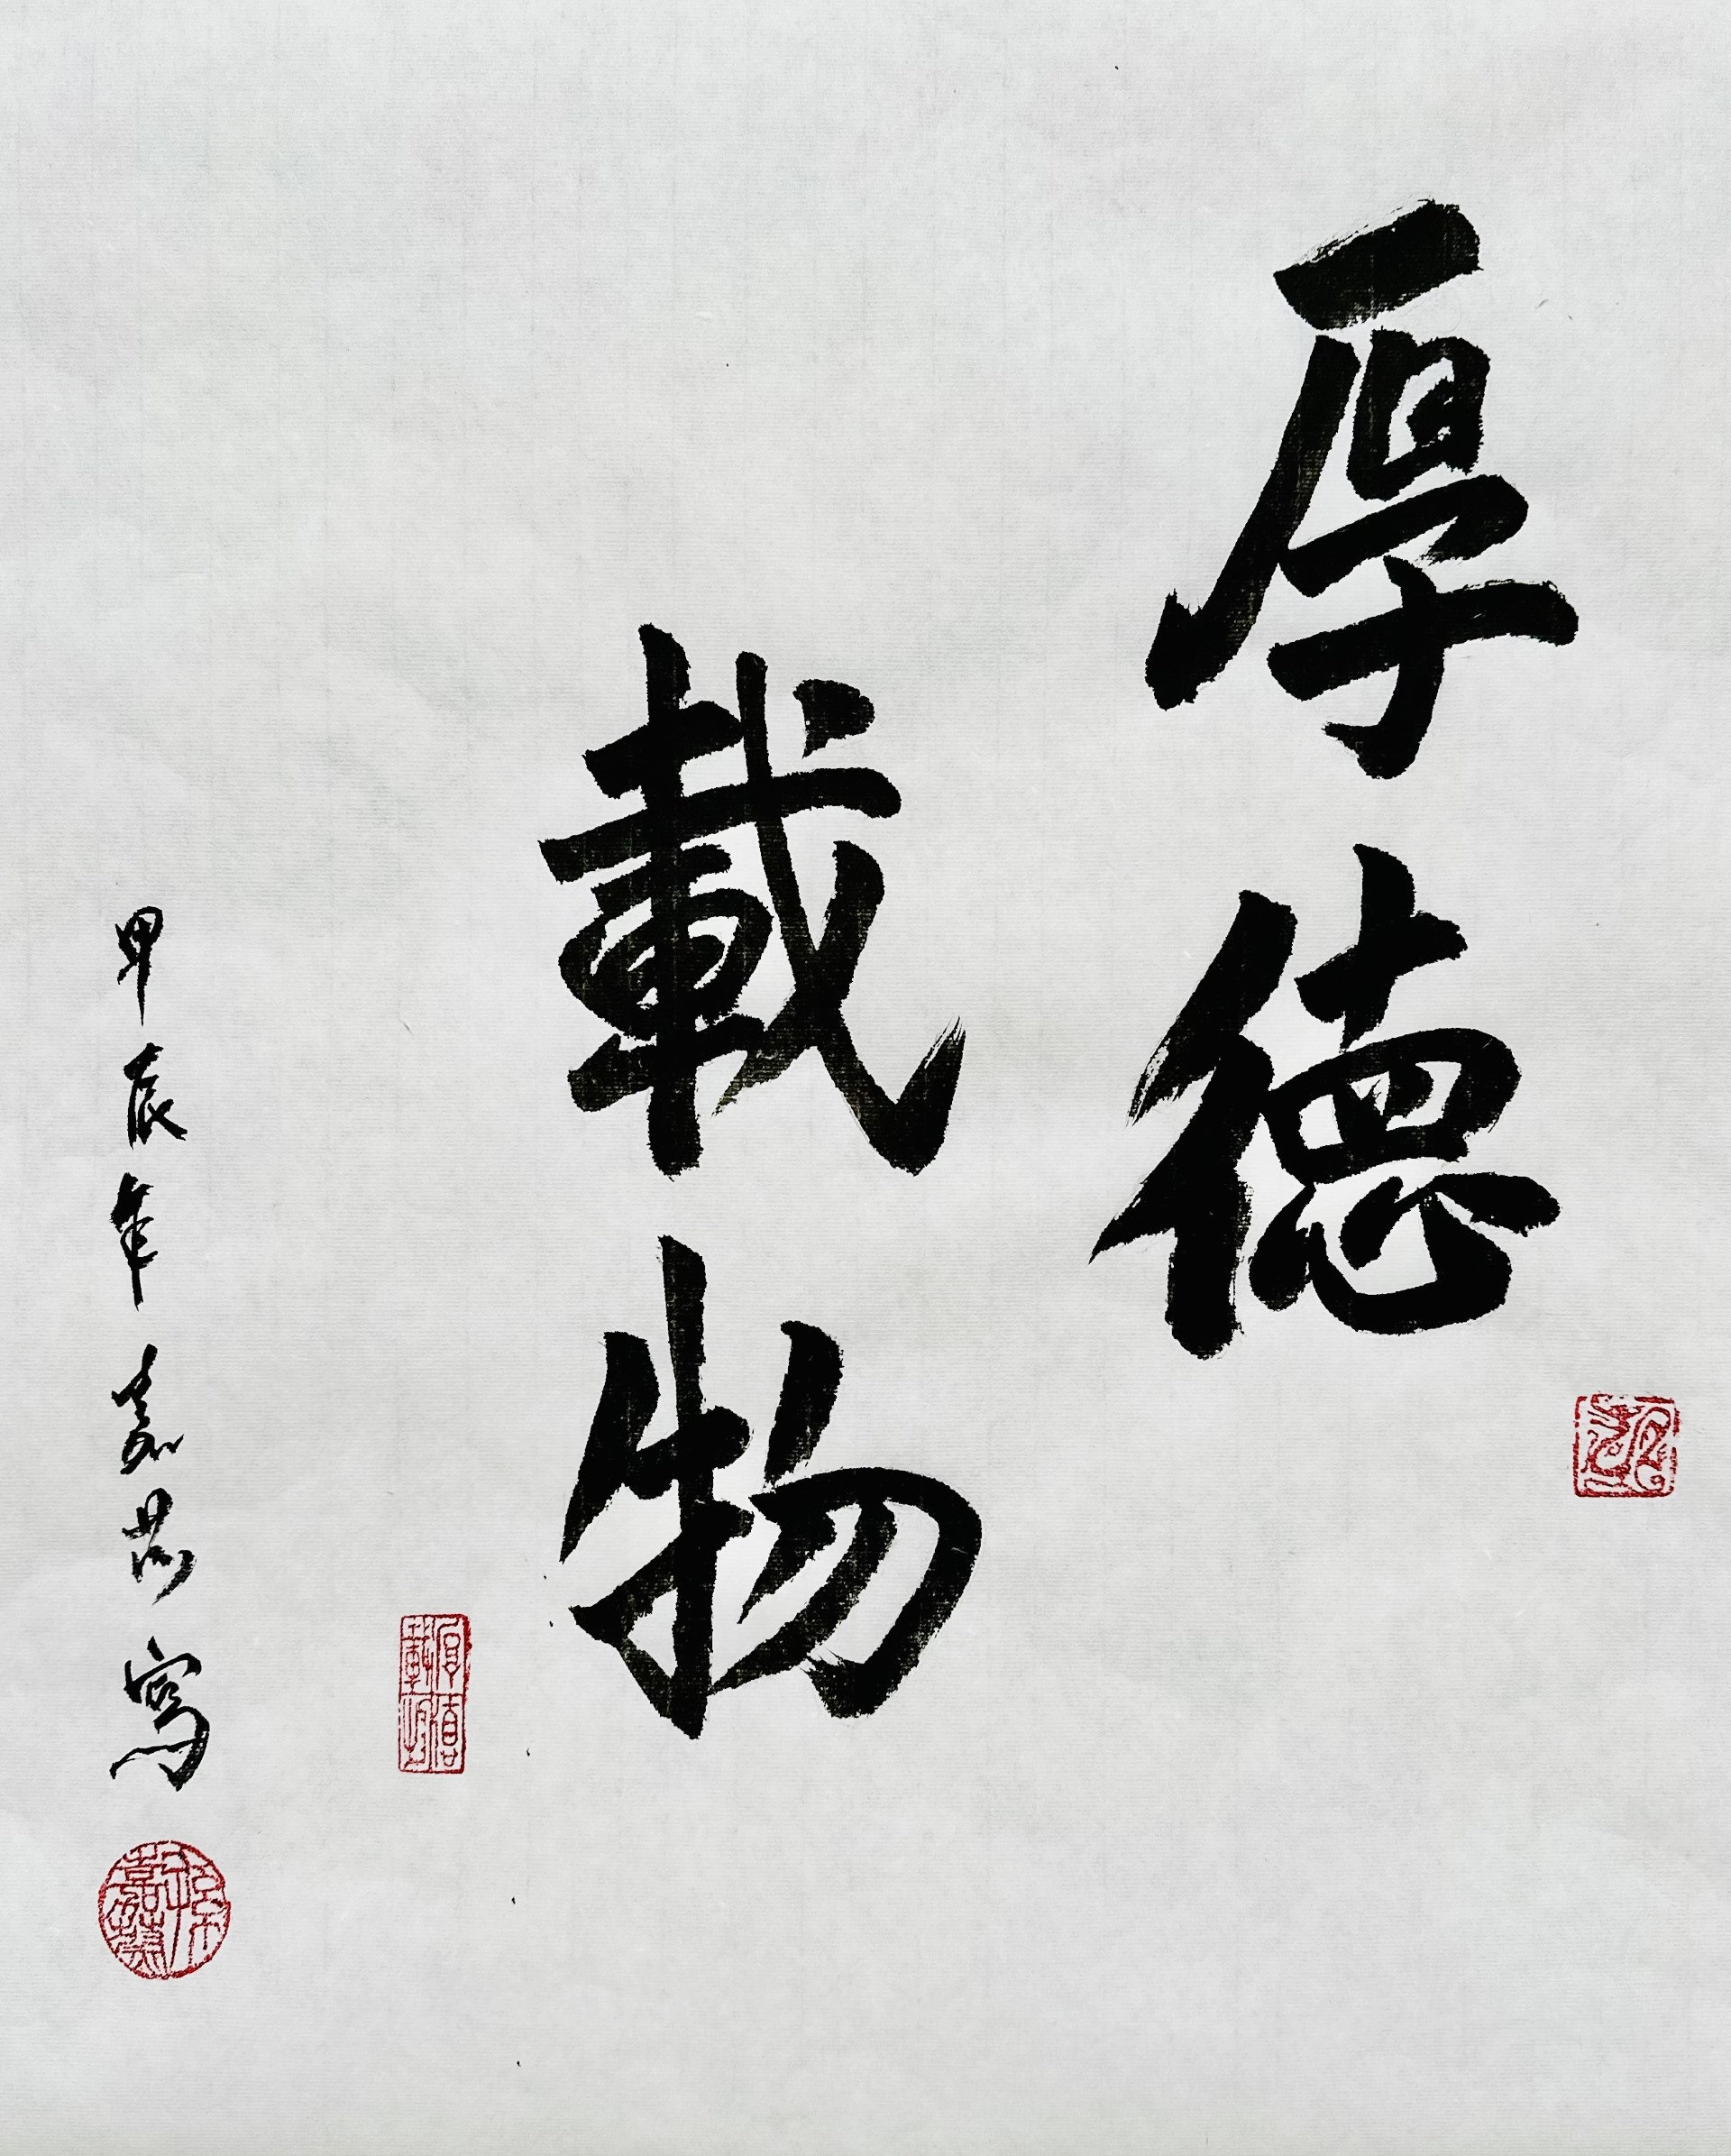 厚德
載物
甲辰年嘉芬寫
厚德載物